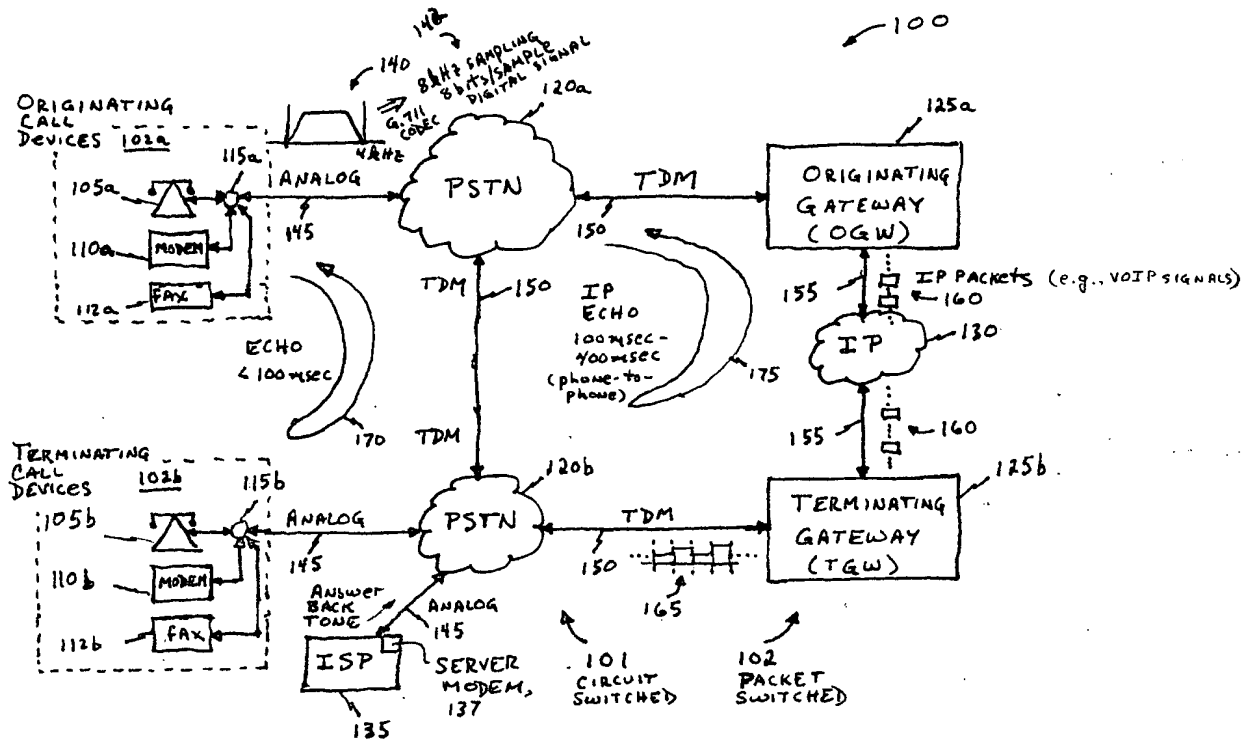 100
142
140
8kHz SAMPLING
8bits/SAMPLE
DIGITAL SIGNAL
G.711
CODEC
4kHz
120a
125a
ORIGINATING
CALL
DEVICES 102a
115a
105a
MODEM
110a
FAX
112a
ANALOG
145
PSTN
TDM
150
ORIGINATING
GATEWAY
(OGW)
TDM
150
155
IP PACKETS (e.g., VOIP SIGNALS)
160
IP
130
ECHO
<100msec
170
IP
ECHO
100msec-
400msec
(phone-to-
phone)
175
155
160
TDM
TERMINATING
CALL
DEVICES 102b
115b
105b
MODEM
110b
FAX
112b
ANALOG
145
120b
PSTN
TDM
150
165
125b
TERMINATING
GATEWAY
(TGW)
ANSWER
BACK
TONE
ANALOG
145
ISP
135
SERVER
MODEM,
137
101
CIRCUIT
SWITCHED
102
PACKET
SWITCHED